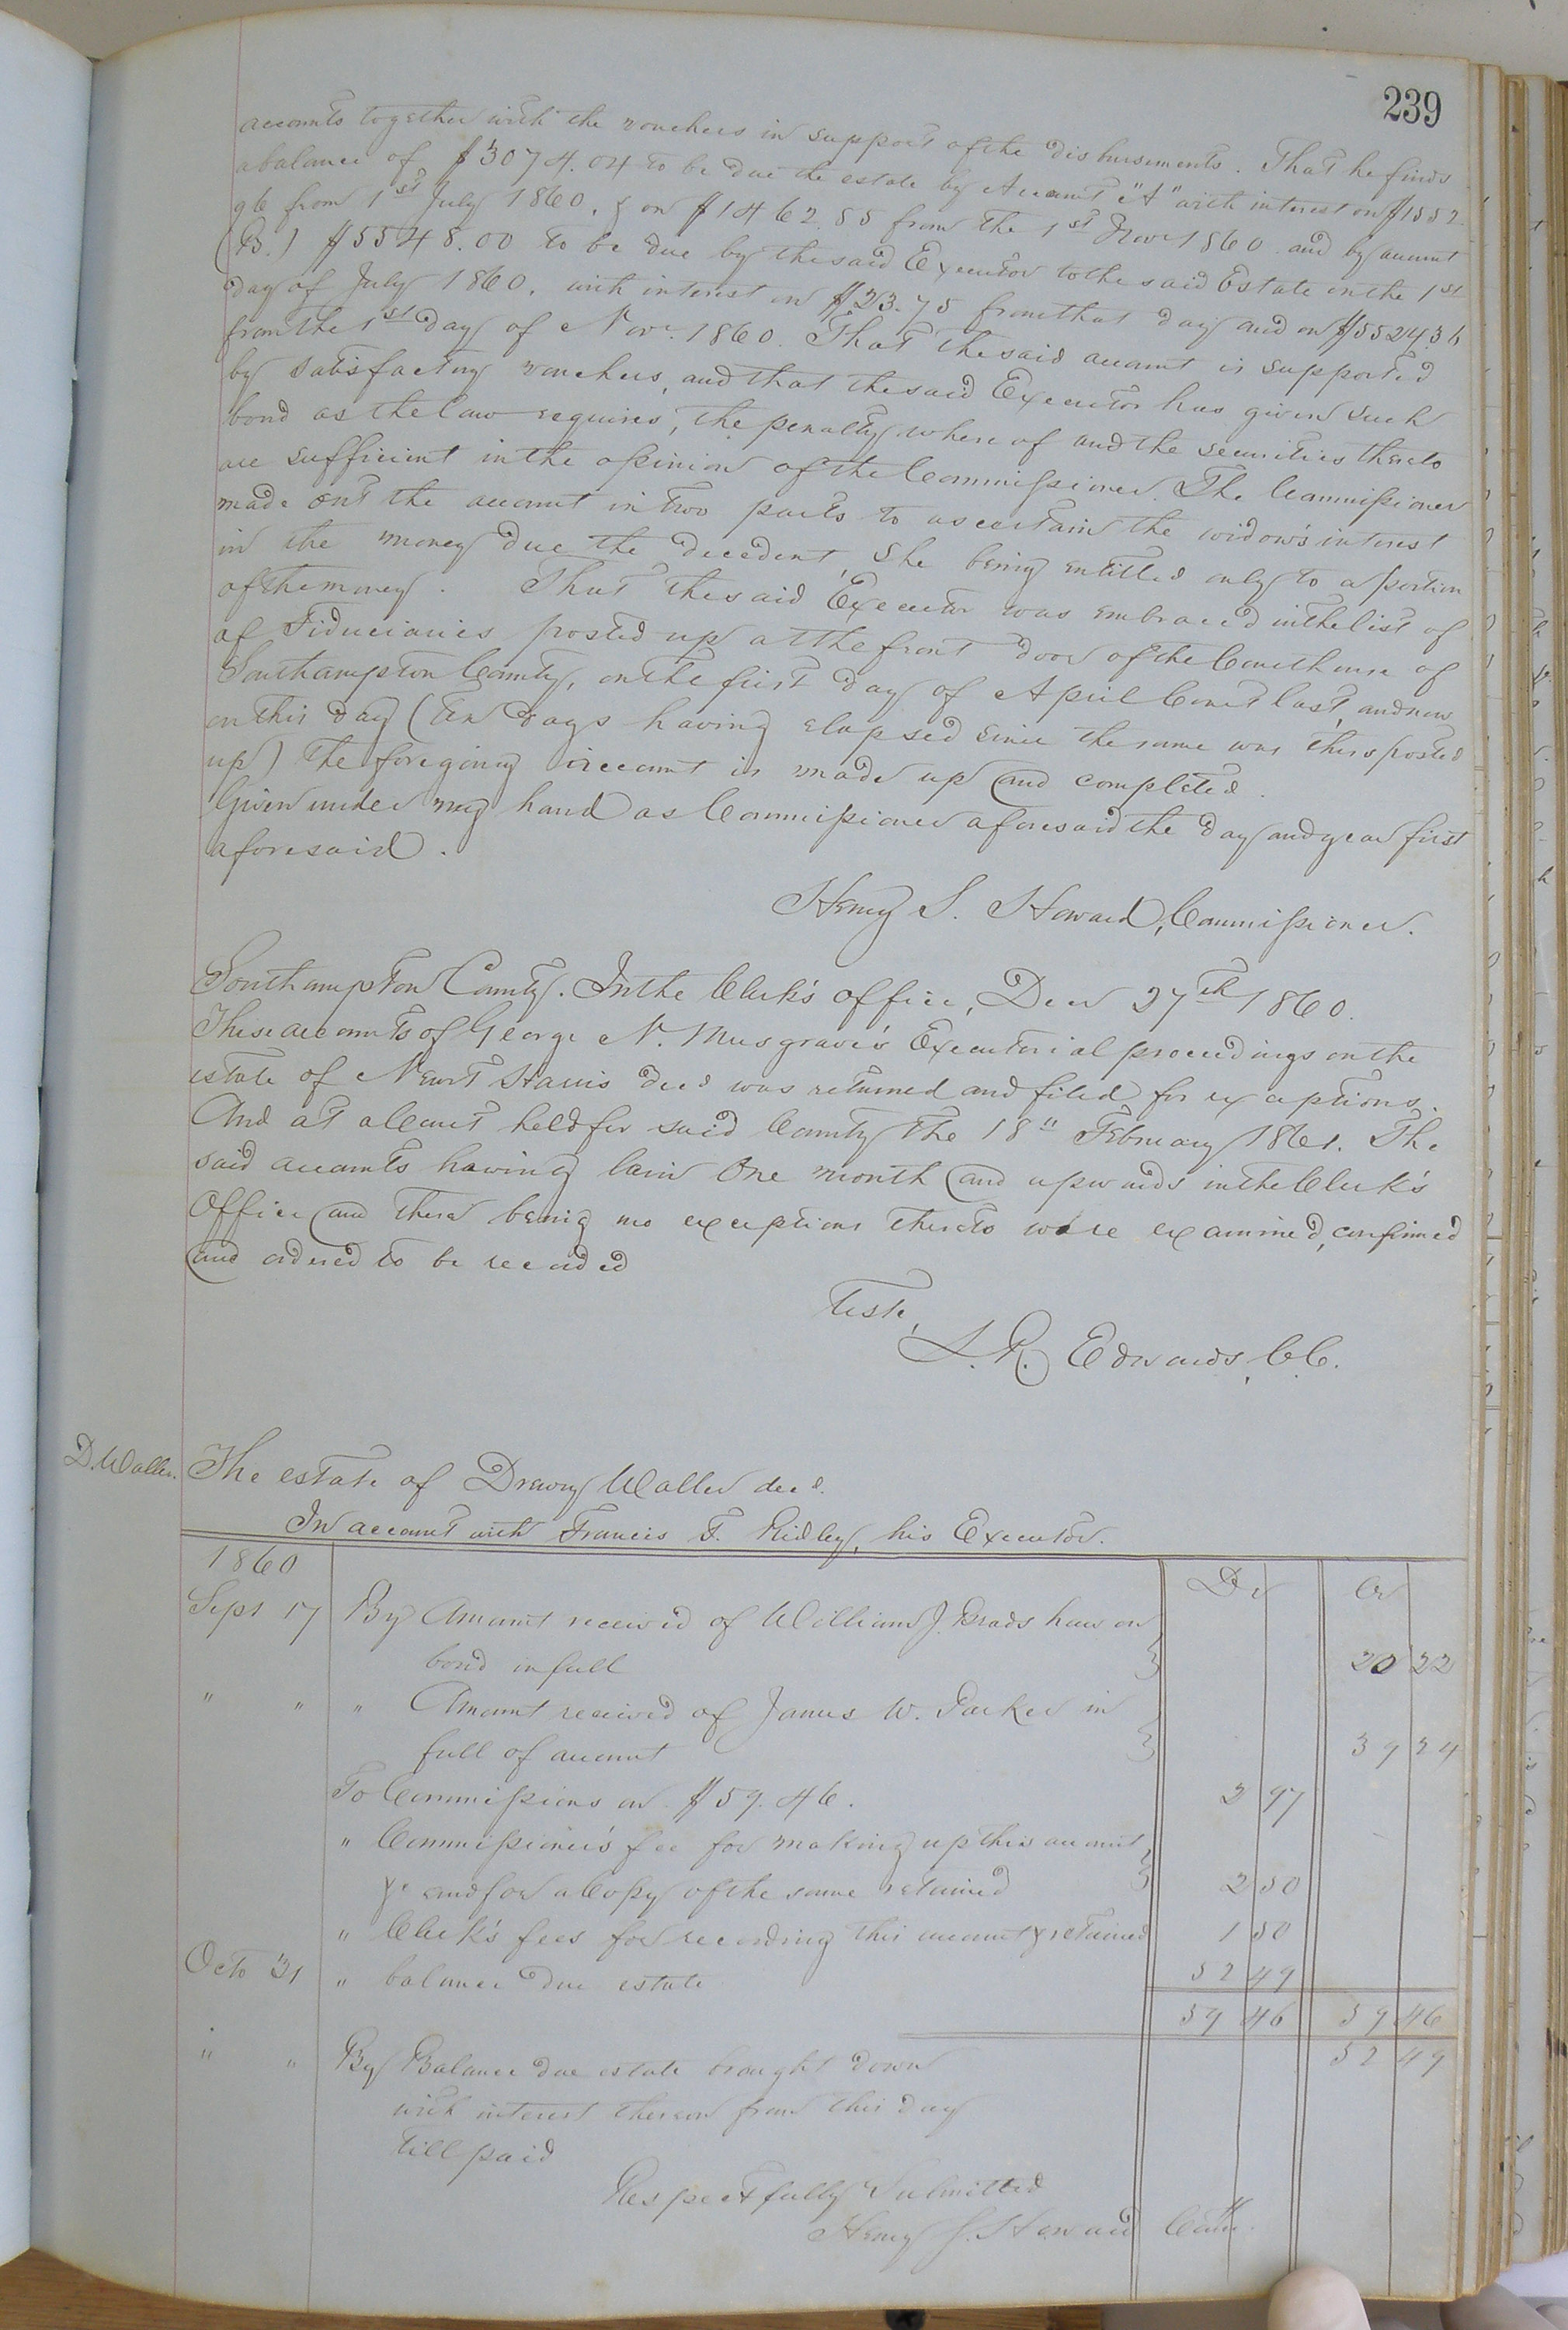 239
accounts together with the vouchers in support of the disbursements. That he finds
a balance of $3074.04 to be due the estate by Account "A" with interest on $1552
96 from 1st July 1860, & on $1462.85 from the 1st Nov 1860 and by account
(B.) $5548.00 to be due by the said Executor to the said Estate on the 1st
day of July 1860, with interest on $23.75 from that day and on $5524.36
from the 1st day of Nov. 1860. That the said account is supported
by satisfactory vouchers, and that the said Executor has given such
bond as the law requires, the penalty whereof and the securities thereto
are sufficient in the opinion of the Commissioner. The Commissioner
made out the account in two parts to ascertain the widow's interest
in the money due the decedent, she being entitled only to a portion
of the money. That the said Executor was embraced in the list of
of Fiduciaries posted up at the front door of the Courthouse of
Southampton County, on the first day of April Court last, and now
on this day (ten days having elapsed since the same was thus posted
up) the foregoing account is made up and completed.
Given under my hand as Commissioner aforesaid the day and year first
aforesaid.
Henry S. Howard, Commissioner.
Southampton County. In the Clerk's office, Decr 27th 1860.
These accounts of George N. Musgrave's Executorial proceedings on the
estate of Newit Harris decd was returned and filed for exceptions.
And at a Court held for said County the 18" February 1861. The
said accounts having lain One month and upwards in the Clerk's
Office and there being no exceptions thereto were examined, confirmed
and ordered to be recorded
Teste,
L. R. Edwards, C.C.
D. Waller. The estate of Drewry Waller decd.
In account with Francis T. Ridley, his Executor.
1860 Dr Cr
Sept 17 By Amount received of William J. Bradshaw on
bond in full 20 22
" " " Amount received of James W. Parker in
full of account 39 24
To Commissions on $59.46. 2 97
" Commissioner's fee for making up this account
&c and for a Copy of the same retained 2 50
" Clerk's fees for recording this account & retained 1 50
Octo 31 " balance due estate 52 49
59 46 59 46
" " By Balance due estate brought down 52 49
with interest thereon from this day
till paid
Respectfully Submitted
Henry S. Howard Comr.